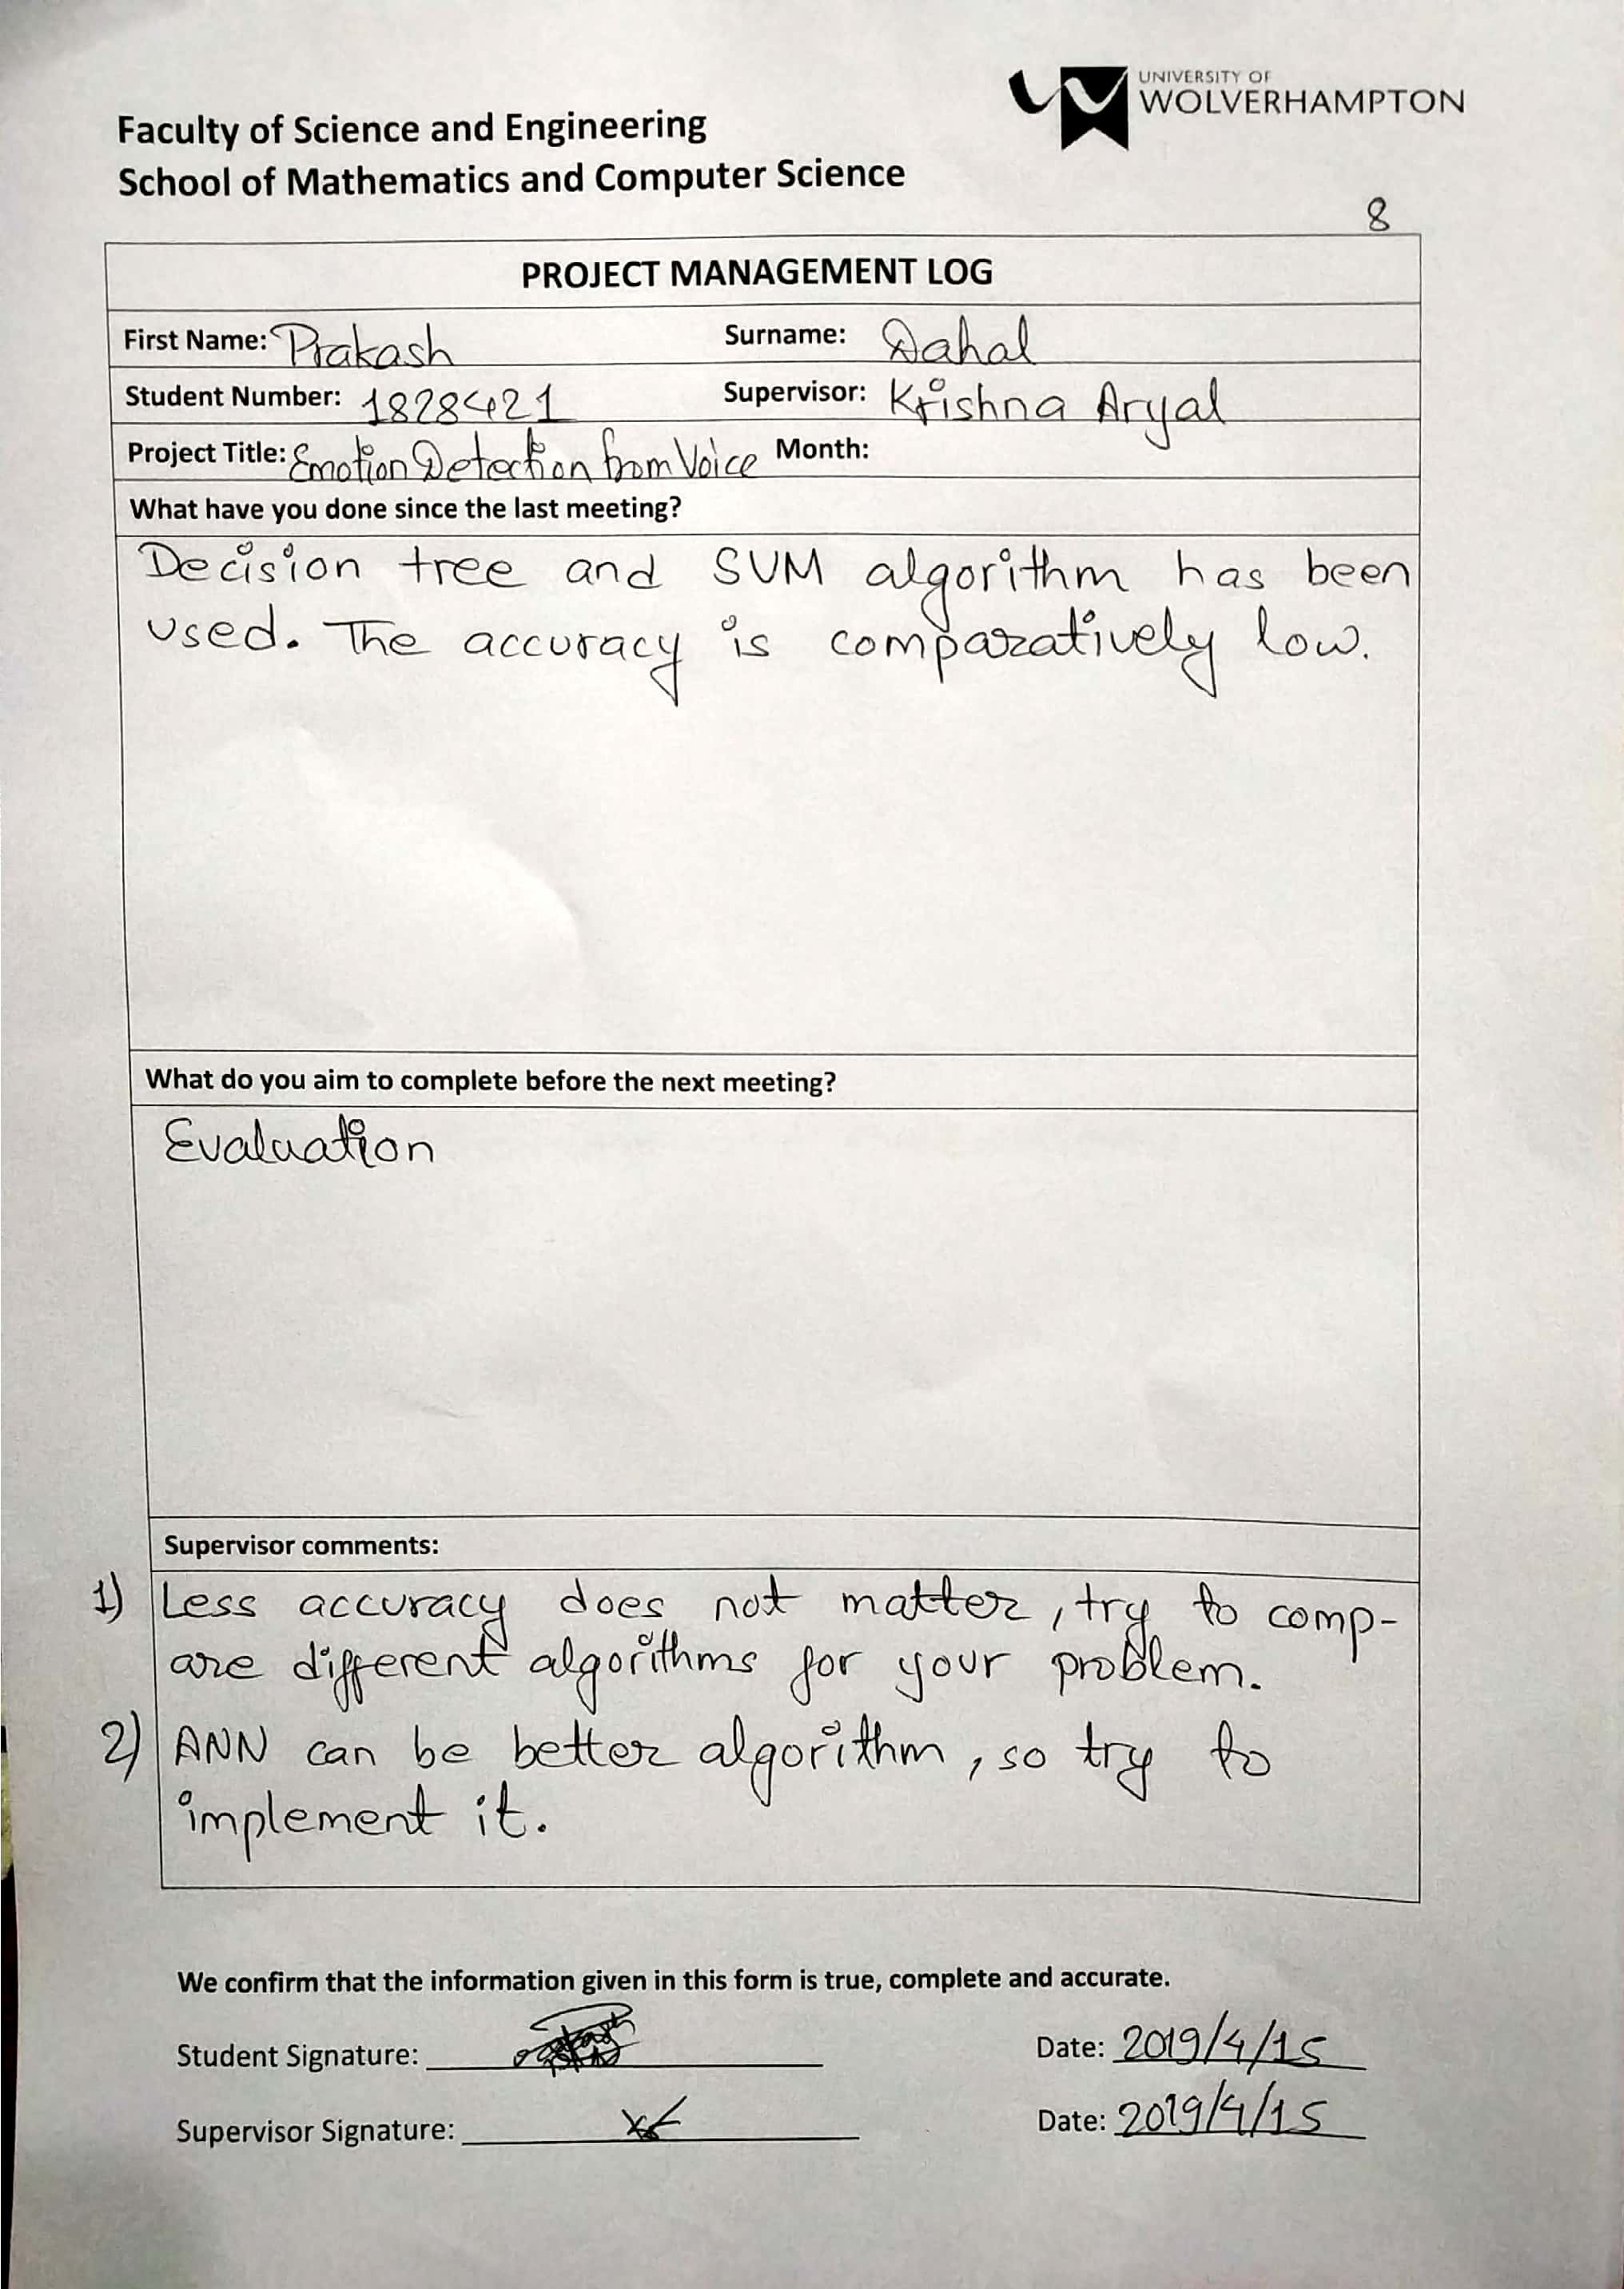 UNIVERSITY OF
WOLVERHAMPTON
Faculty of Science and Engineering
School of Mathematics and Computer Science
8
PROJECT MANAGEMENT LOG
First Name: Prakash Surname: Dahal
Student Number: 1828421 Supervisor: Krishna Aryal
Project Title: Emotion Detection from Voice Month:
What have you done since the last meeting?
Decision tree and SVM algorithm has been
used. The accuracy is comparatively low.
What do you aim to complete before the next meeting?
Evaluation
Supervisor comments:
1) Less accuracy does not matter, try to comp-
are different algorithms for your problem.
2) ANN can be better algorithm, so try to
implement it.
We confirm that the information given in this form is true, complete and accurate.
Student Signature: Date: 2019/4/15
Supervisor Signature: Date: 2019/4/15